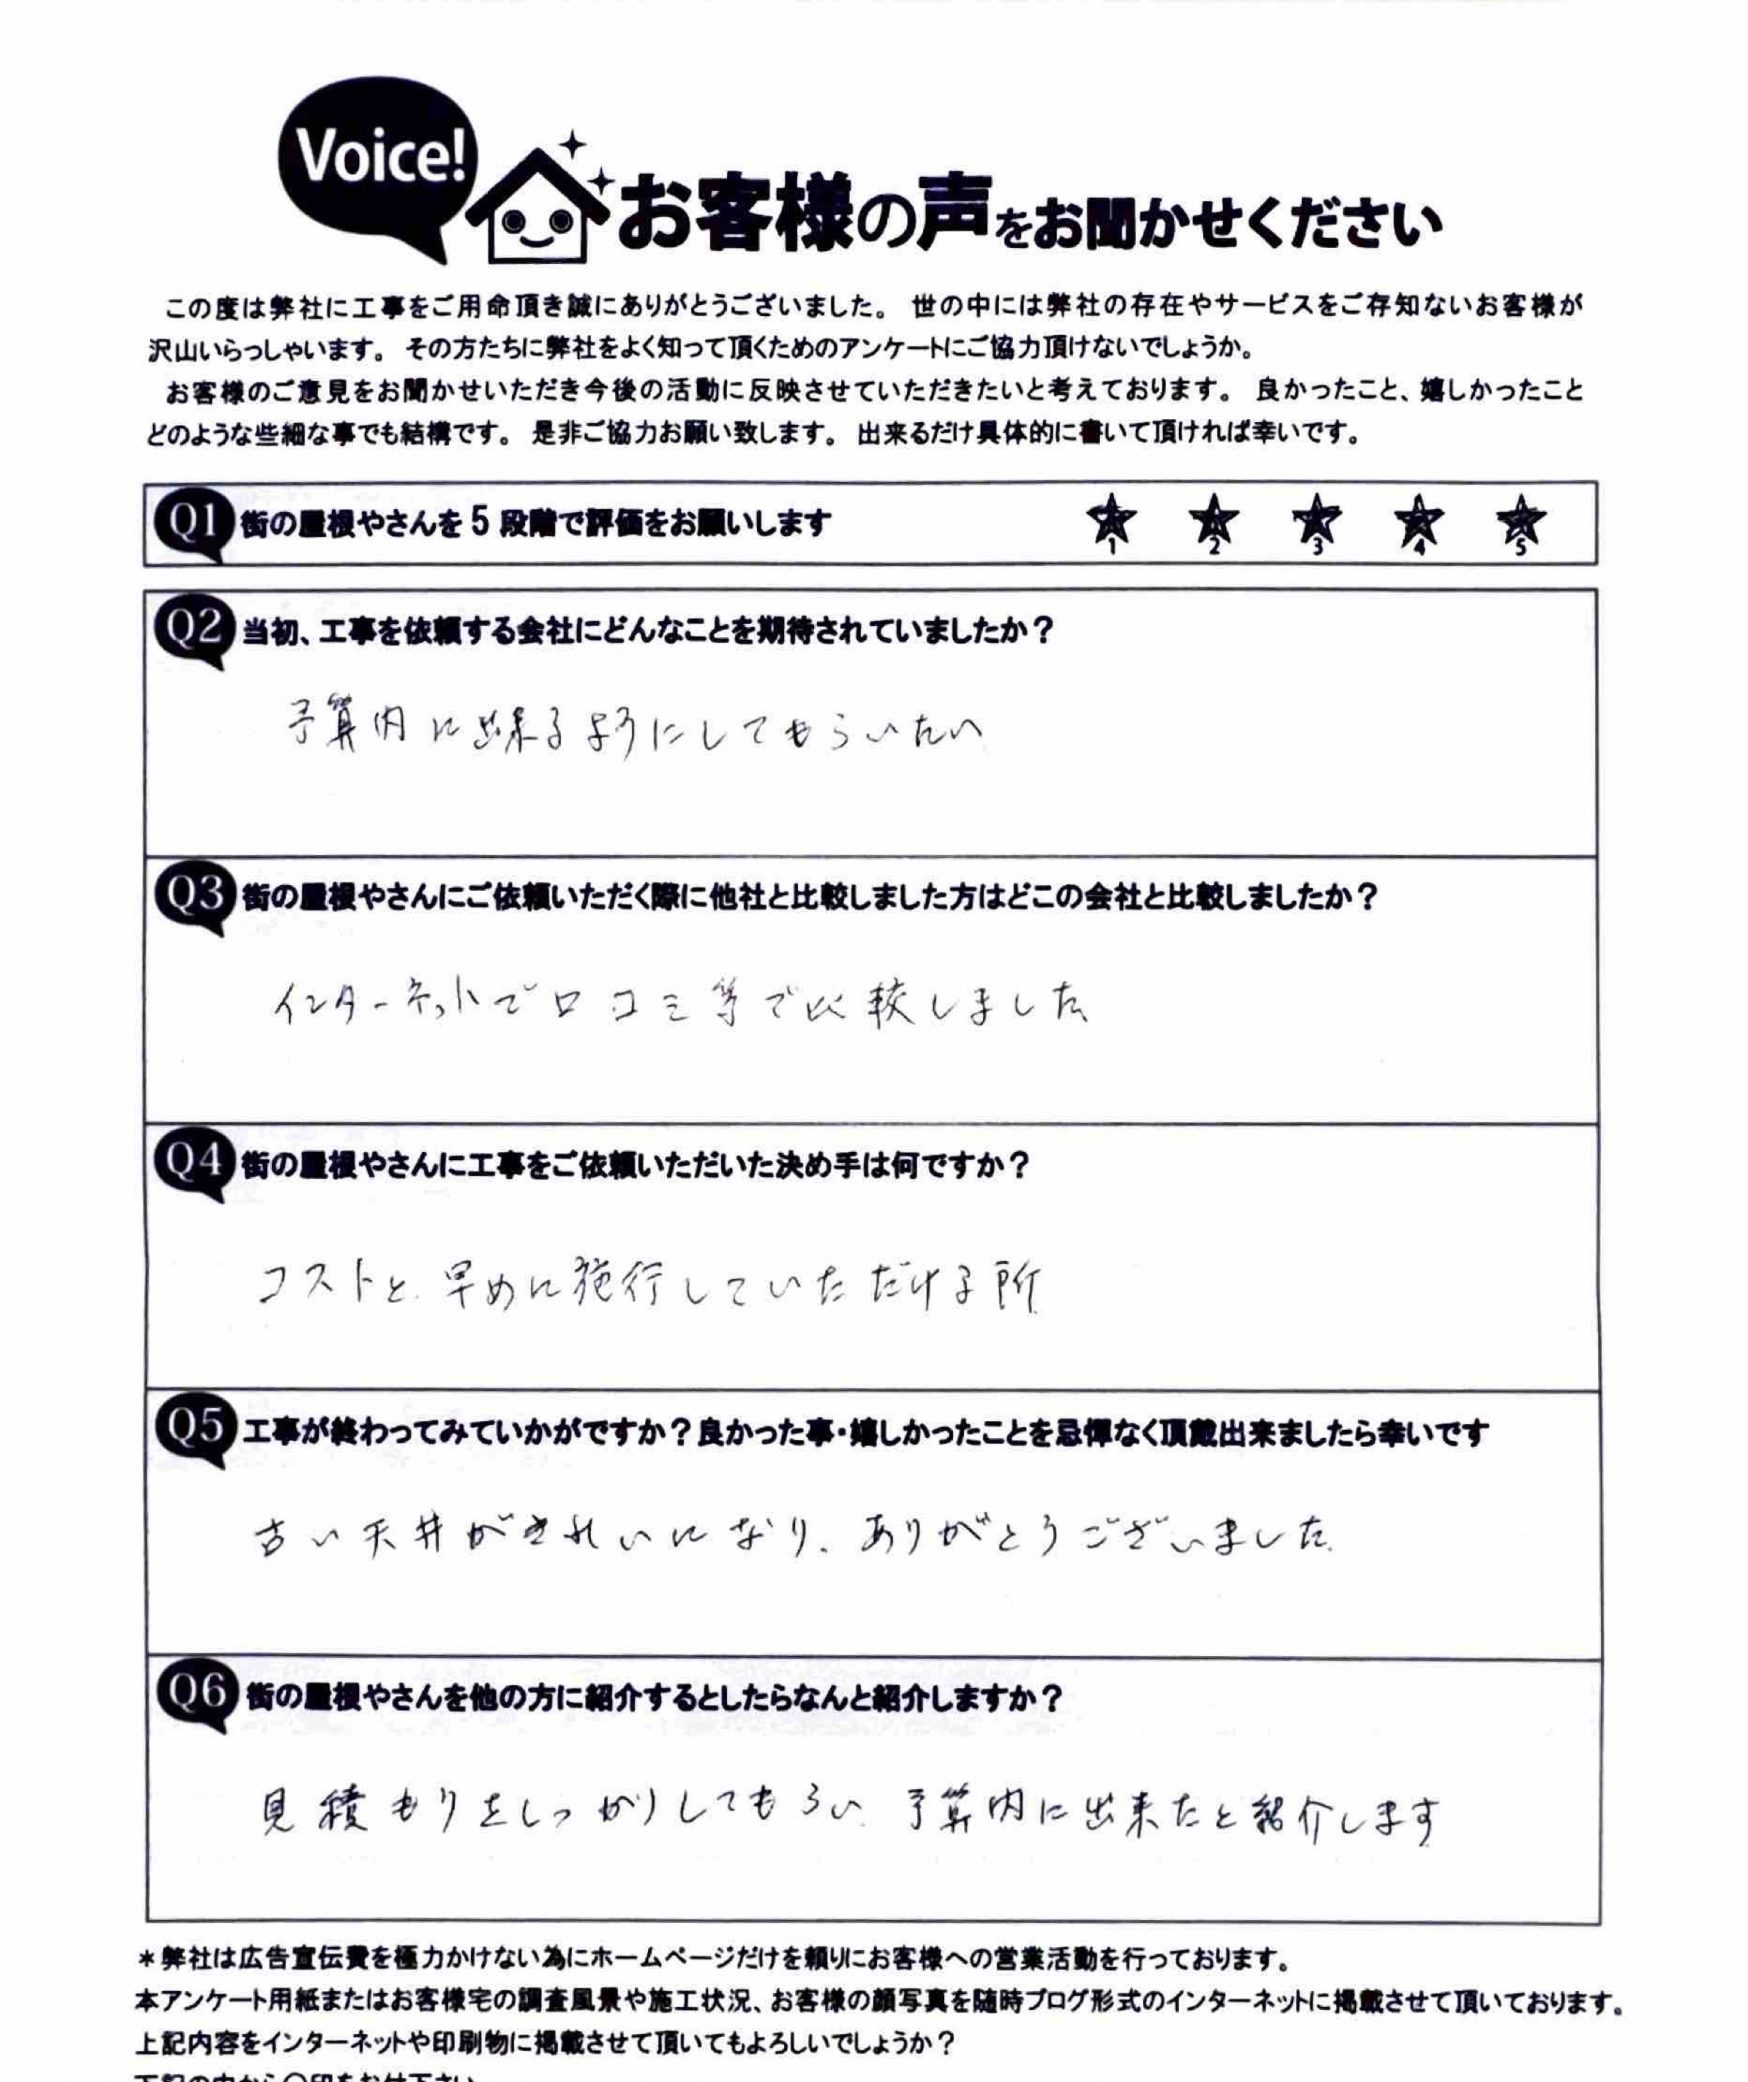 Voice!
お客様の声をお聞かせください
この度は弊社に工事をご用命頂き誠にありがとうございました。 世の中には弊社の存在やサービスをご存知ないお客様が
沢山いらっしゃいます。 その方たちに弊社をよく知って頂くためのアンケートにご協力頂けないでしょうか。
お客様のご意見をお聞かせいただき今後の活動に反映させていただきたいと考えております。 良かったこと、嬉しかったこと
どのような些細な事でも結構です。 是非ご協力お願い致します。 出来るだけ具体的に書いて頂ければ幸いです。
Q1 街の屋根やさんを5段階で評価をお願いします ★1 ★2 ★3 ★4 ★5
Q2 当初、工事を依頼する会社にどんなことを期待されていましたか？
予算内に出来るようにしてもらいたい
Q3 街の屋根やさんにご依頼いただく際に他社と比較しました方はどこの会社と比較しましたか？
インターネットで口コミ等で比較しました
Q4 街の屋根やさんに工事をご依頼いただいた決め手は何ですか？
コストと、早めに施行していただける所
Q5 工事が終わってみていかがですか？良かった事・嬉しかったことを忌憚なく頂戴出来ましたら幸いです
古い天井がきれいになり、ありがとうございました。
Q6 街の屋根やさんを他の方に紹介するとしたらなんと紹介しますか？
見積もりをしっかりしてもらい、予算内に出来たと紹介します
＊弊社は広告宣伝費を極力かけない為にホームページだけを頼りにお客様への営業活動を行っております。
本アンケート用紙またはお客様宅の調査風景や施工状況、お客様の顔写真を随時ブログ形式のインターネットに掲載させて頂いております。
上記内容をインターネットや印刷物に掲載させて頂いてもよろしいでしょうか？
下記の中から○印をお付下さい